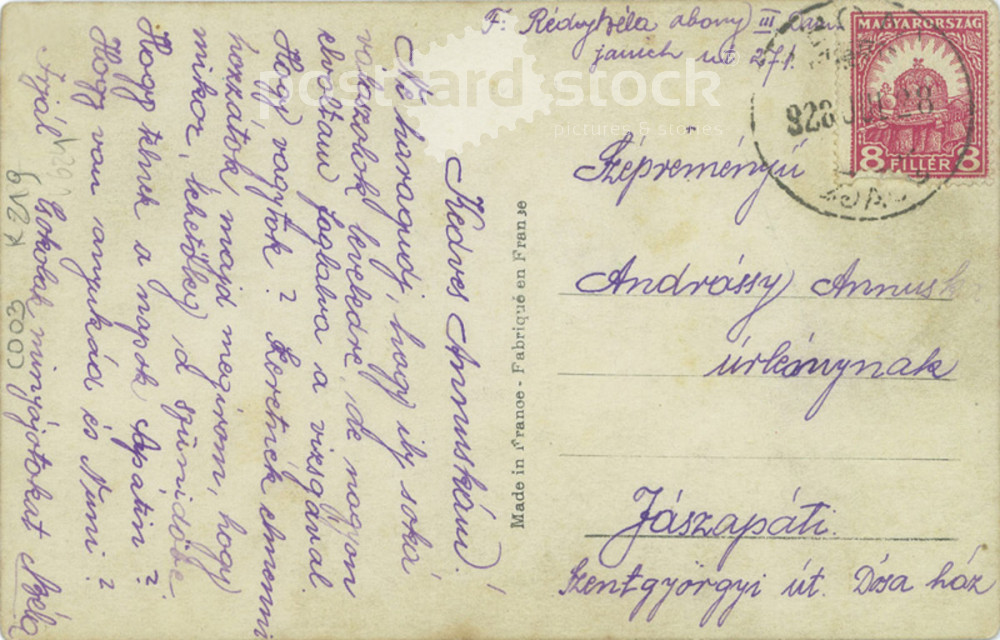 F: Rédey Béla abony III
janich út 271.
MAGYARORSZÁG
928 JUL 28
8 FILLÉR 8
postcard stock
pictures & stories
Szépreményű
Andrássy Annuska
úrleánynak
Jászapáti.
Szentgyörgyi út. Dósa ház
Made in France - Fabriqué en France
Kedves Annuskám!
Ne haragudj, hogy ily soká
válaszolok leveledre, de nagyon
elvoltam foglalva a vizsgával.
Hogy vagytok? Szeretnék elmenni
hozzátok, majd megírom, hogy
mikor, lehetőleg a szünidőbe.
Hogy telnek a napok Apátin?
Hogy van anyukád és Nuni?
Írjál Csókolak minyájotokat Béla